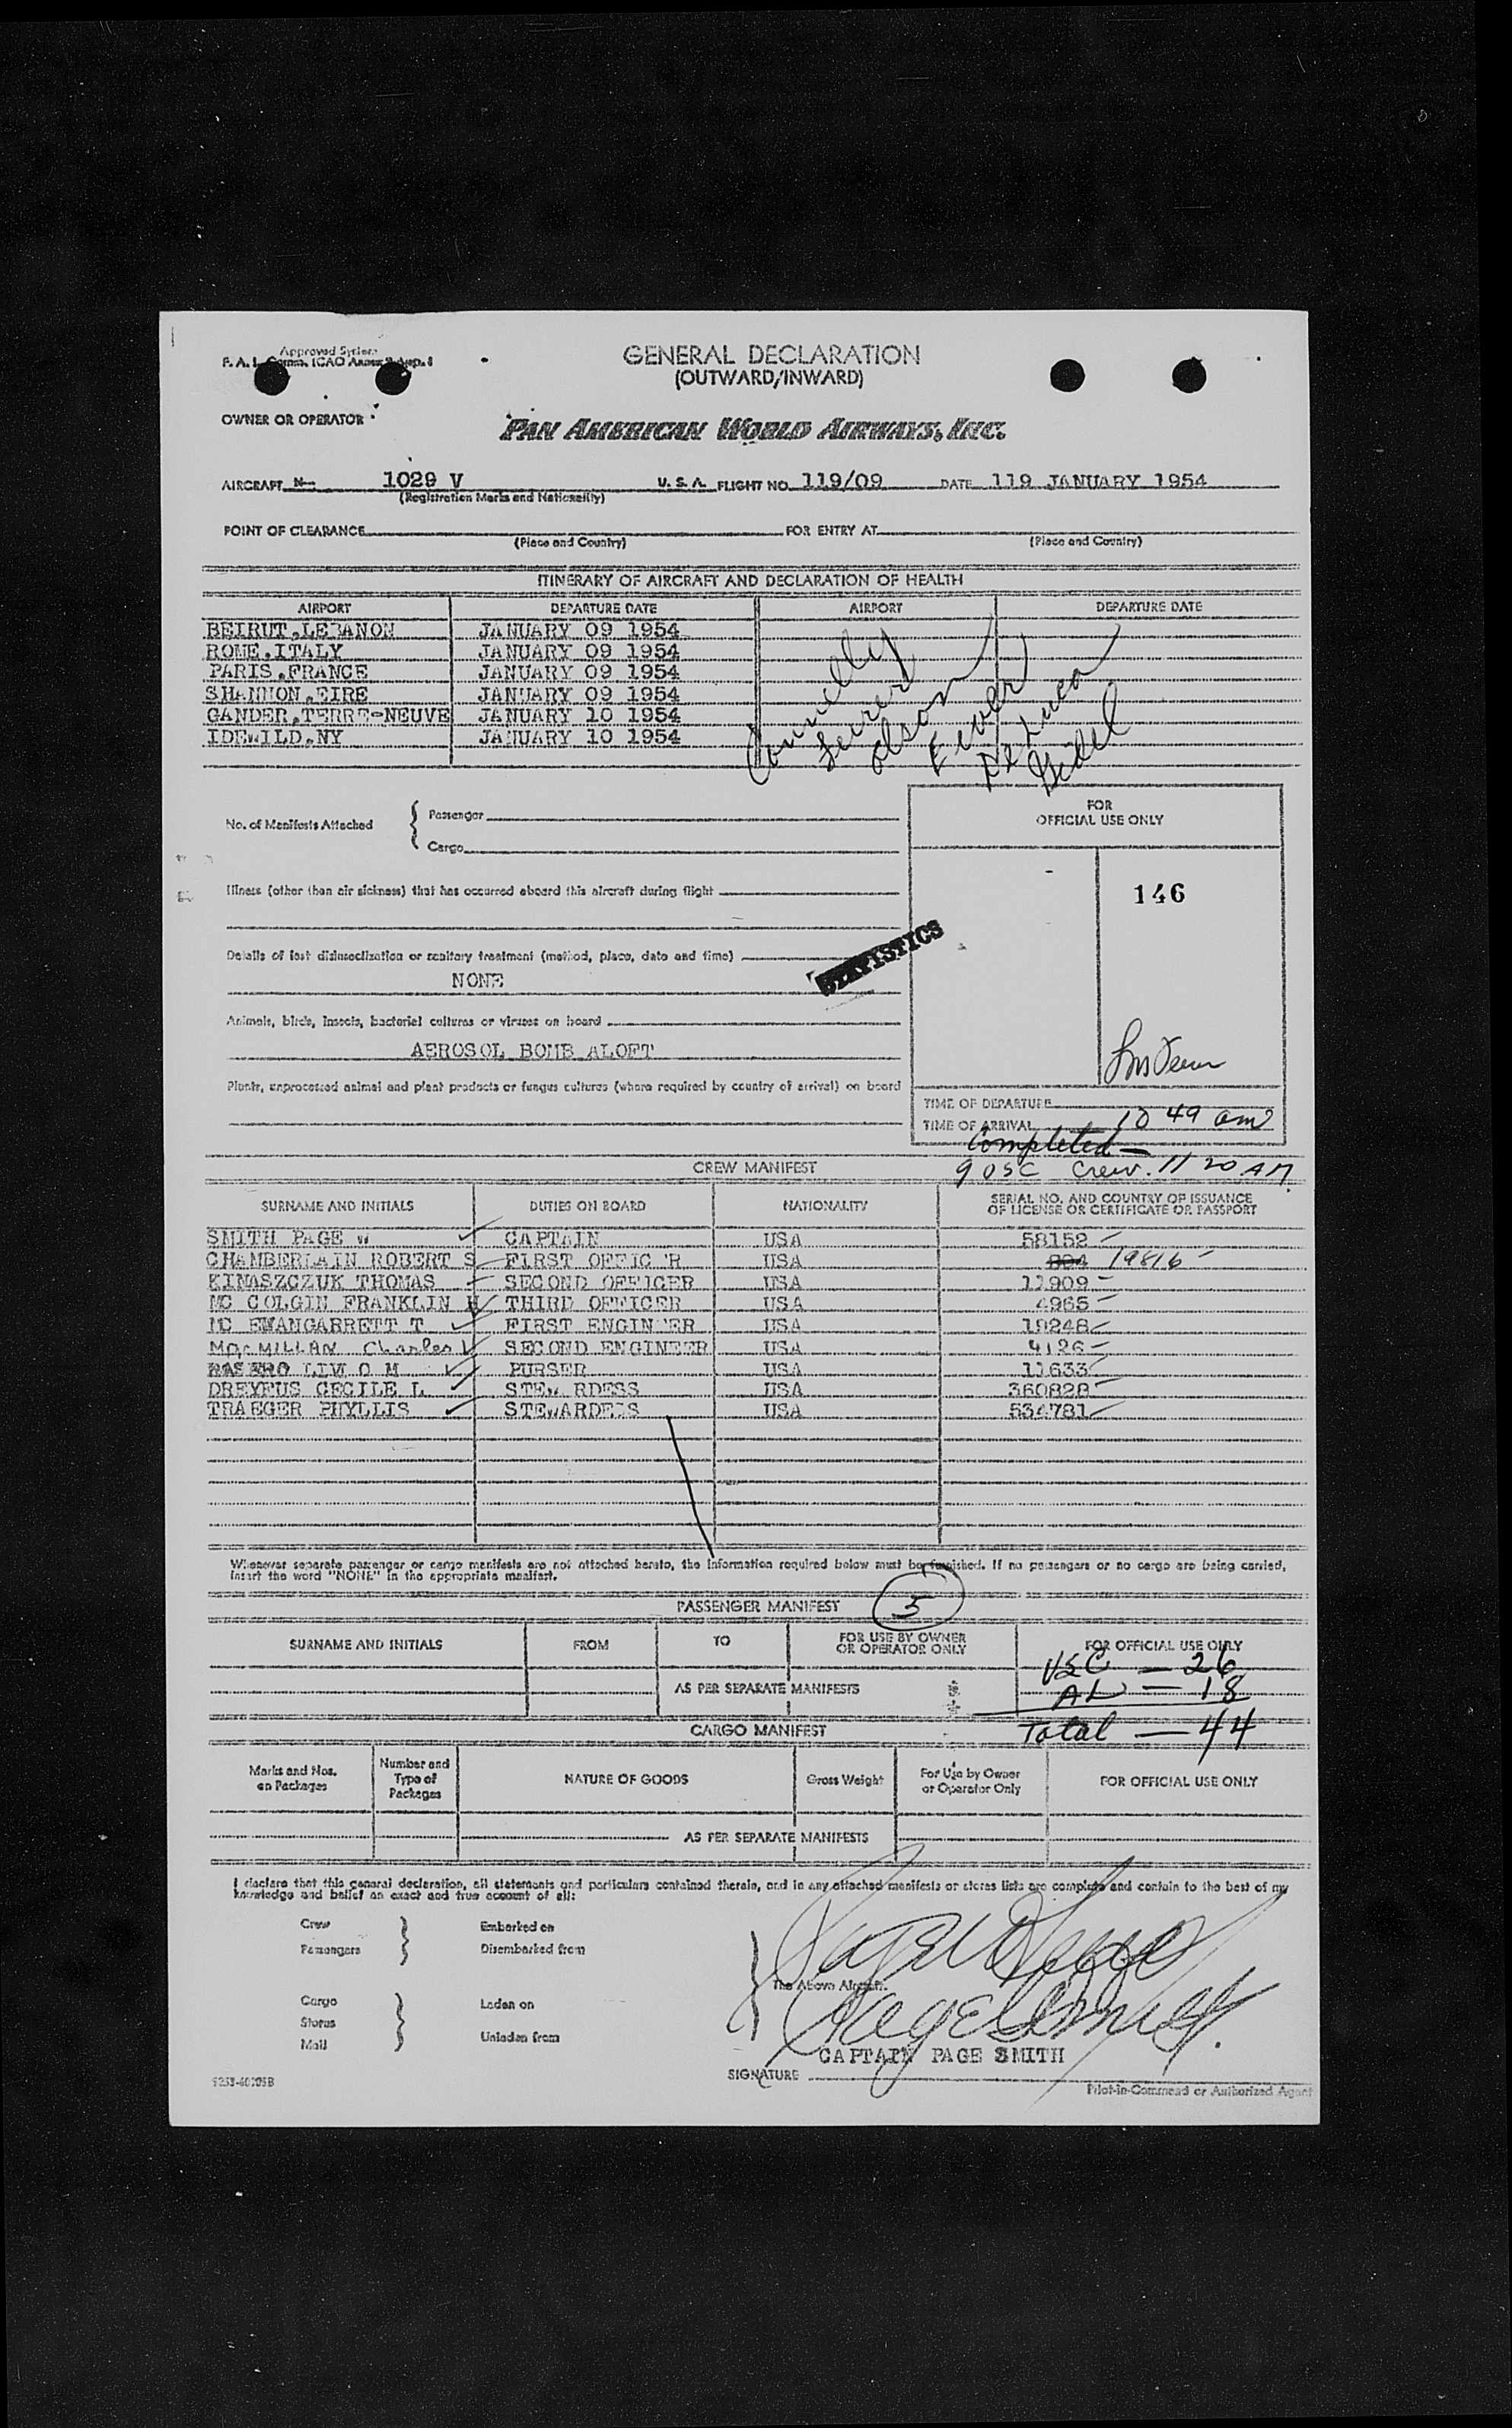 Approved System
F. A. L. Comm. ICAO Annex 9 App. 1
GENERAL DECLARATION
(OUTWARD/INWARD)
OWNER OR OPERATOR
PAN AMERICAN WORLD AIRWAYS, INC.
AIRCRAFT N— 1029 V U. S. A. FLIGHT NO. 119/09 DATE 119 JANUARY 1954
(Registration Marks and Nationality)
POINT OF CLEARANCE FOR ENTRY AT
(Place and Country) (Place and Country)
ITINERARY OF AIRCRAFT AND DECLARATION OF HEALTH
AIRPORT DEPARTURE DATE AIRPORT DEPARTURE DATE
BEIRUT,LEBANON JANUARY 09 1954
ROME,ITALY JANUARY 09 1954
PARIS,FRANCE JANUARY 09 1954
SHANNON,EIRE JANUARY 09 1954
GANDER,TERRE-NEUVE JANUARY 10 1954
IDEWILD,NY JANUARY 10 1954
Connelly
Olson
De Luca
No. of Manifests Attached
Passenger
Cargo
FOR
OFFICIAL USE ONLY
146
Illness (other than air sickness) that has occurred aboard this aircraft during flight
Details of last disinsectization or sanitary treatment (method, place, date and time)
NONE
STATISTICS
Animals, birds, insects, bacterial cultures or viruses on board
AEROSOL BOMB ALOFT
Plants, unprocessed animal and plant products or fungus cultures (where required by country of arrival) on board
TIME OF DEPARTURE
TIME OF ARRIVAL 10 49 am
Completed —
CREW MANIFEST 9 USC Crew. 11 20 AM
SURNAME AND INITIALS DUTIES ON BOARD NATIONALITY SERIAL NO. AND COUNTRY OF ISSUANCE
OF LICENSE OR CERTIFICATE OR PASSPORT
SMITH PAGE W CAPTAIN USA 58152
CHAMBERLAIN ROBERT S FIRST OFFIC R USA 19816
KINASZCZUK THOMAS SECOND OFFICER USA 11909
MC COLGIN FRANKLIN H THIRD OFFICER USA 4965
MC EWANGARRETT T FIRST ENGINEER USA 19248
MacMILLAN Charles SECOND ENGINEER USA 4126
LIVI O M PURSER USA 11633
DREYFUS CECILE L STEWARDESS USA 360828
TRAEGER PHYLLIS STEWARDESS USA 534781
Whenever separate passenger or cargo manifests are not attached hereto, the information required below must be furnished. If no passengers or no cargo are being carried,
insert the word "NONE" in the appropriate manifest.
PASSENGER MANIFEST 5
SURNAME AND INITIALS FROM TO FOR USE BY OWNER
OR OPERATOR ONLY FOR OFFICIAL USE ONLY
USC — 26
AS PER SEPARATE MANIFESTS AL — 18
CARGO MANIFEST Total — 44
Marks and Nos.
on Packages Number and
Type of
Packages NATURE OF GOODS Gross Weight For Use by Owner
or Operator Only FOR OFFICIAL USE ONLY
AS PER SEPARATE MANIFESTS
I declare that this general declaration, all statements and particulars contained therein, and in any attached manifests or stores lists are complete and contain to the best of my
knowledge and belief an exact and true account of all:
Crew Embarked on
Passengers Disembarked from
The Above Aircraft.
Cargo Laden on
Stores
Mail Unladen from
Page W Smith
Page W Smith
CAPTAIN PAGE SMITH
SIGNATURE
Pilot-in-Command or Authorized Agent